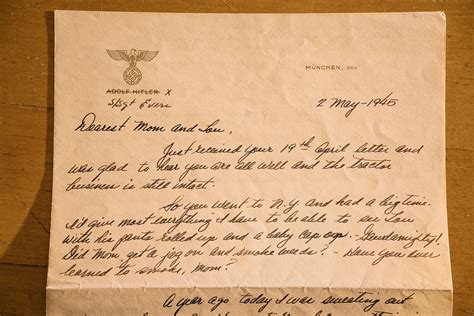 MÜNCHEN, DEN
ADOLF HITLER X
S/Sgt Evers
2 May-1945
Dearest Mom and Lou,
Just received your 19th April letter and
was glad to hear you are all well and the tractor
business is still intact.
So you went to N.Y. and had a big time.
I'd give most everything I have to be able to see Lou
with his pants rolled up and a baby cap on. - Godamighty!
Did Mom get a jag on and smoke weeds? - Have you ever
learned to smoke, Mom?
A year ago today I was sweating out